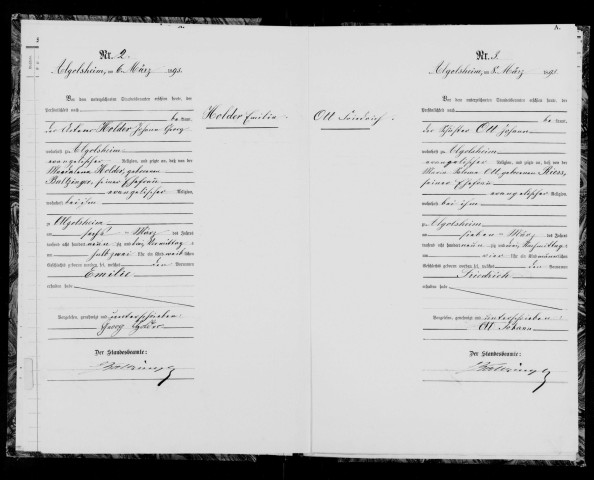 Nr. 2.
Algolsheim, am 6. März 1891.
Vor dem unterzeichneten Standesbeamten erschien heute, der
Persönlichkeit nach
be kannt,
der Ackerer Holder Johann Georg
wohnhaft zu Algolsheim
evangelischer Religion, und zeigte an, daß von der
Magdalena Holder, geborenen
Baltzinger, seiner Ehefrau
evangelischer Religion,
wohnhaft bei ihm
zu Algolsheim
am sechs ten März des Jahres
tausend acht hundert neunzig und
Uhr ein Kind weiblichen
Geschlechts geboren worden sei, welches den Vornamen
Emilie
erhalten habe.
Vorgelesen, genehmigt und unterschrieben
Georg Holder
Der Standesbeamte:
Holder Emilie
Ott Friedrich
A.
Nr. 3.
Algolsheim, am 8. März 1891.
Vor dem unterzeichneten Standesbeamten erschien heute, der
Persönlichkeit nach
be kannt,
der Ott Johann
wohnhaft zu Algolsheim
evangelischer Religion, und zeigte an, daß von der
Maria Ott, geborenen Riess,
seiner Ehefrau
evangelischer Religion,
wohnhaft bei ihm
zu Algolsheim
am sieben ten März des Jahres
tausend acht hundert neunzig und Nachmittags
um vier Uhr ein Kind männlichen
Geschlechts geboren worden sei, welches den Vornamen
Friedrich
erhalten habe.
Vorgelesen, genehmigt und unterschrieben
Ott Johann
Der Standesbeamte: